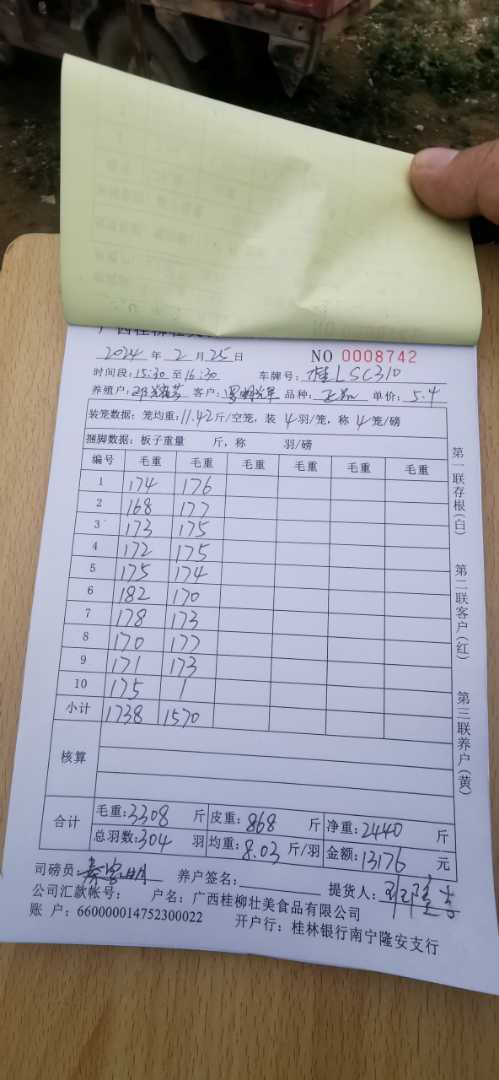 广西桂柳壮美
2024 年 2 月 25 日 NO 0008742
时间段: 15:30 至 16:30 车牌号: 桂LSC310
养殖户: 客户: 品种: 单价: 5.4
装笼数据: 笼均重: 11.42 斤/空笼, 装 4 羽/笼, 称 4 笼/磅
捆脚数据: 板子重量 斤, 称 羽/磅
编号 毛重 毛重 毛重 毛重 毛重 毛重
1 174 176
2 168 177
3 173 175
4 172 175
5 175 174
6 182 170
7 178 173
8 170 177
9 171 173
10 175 /
小计 1738 1570
核算
合计
毛重: 3308 斤 皮重: 868 斤 净重: 2440 斤
总羽数: 304 羽 均重: 8.03 斤/羽 金额: 13176 元
司磅员: 养户签名: 提货人:
公司汇款帐号: 户名: 广西桂柳壮美食品有限公司
账 户: 660000014752300022 开户行: 桂林银行南宁隆安支行
第一联存根(白)
第二联客户(红)
第三联养户(黄)